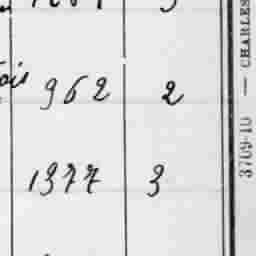 962 2
1377 3
3709-10 — CHARLES